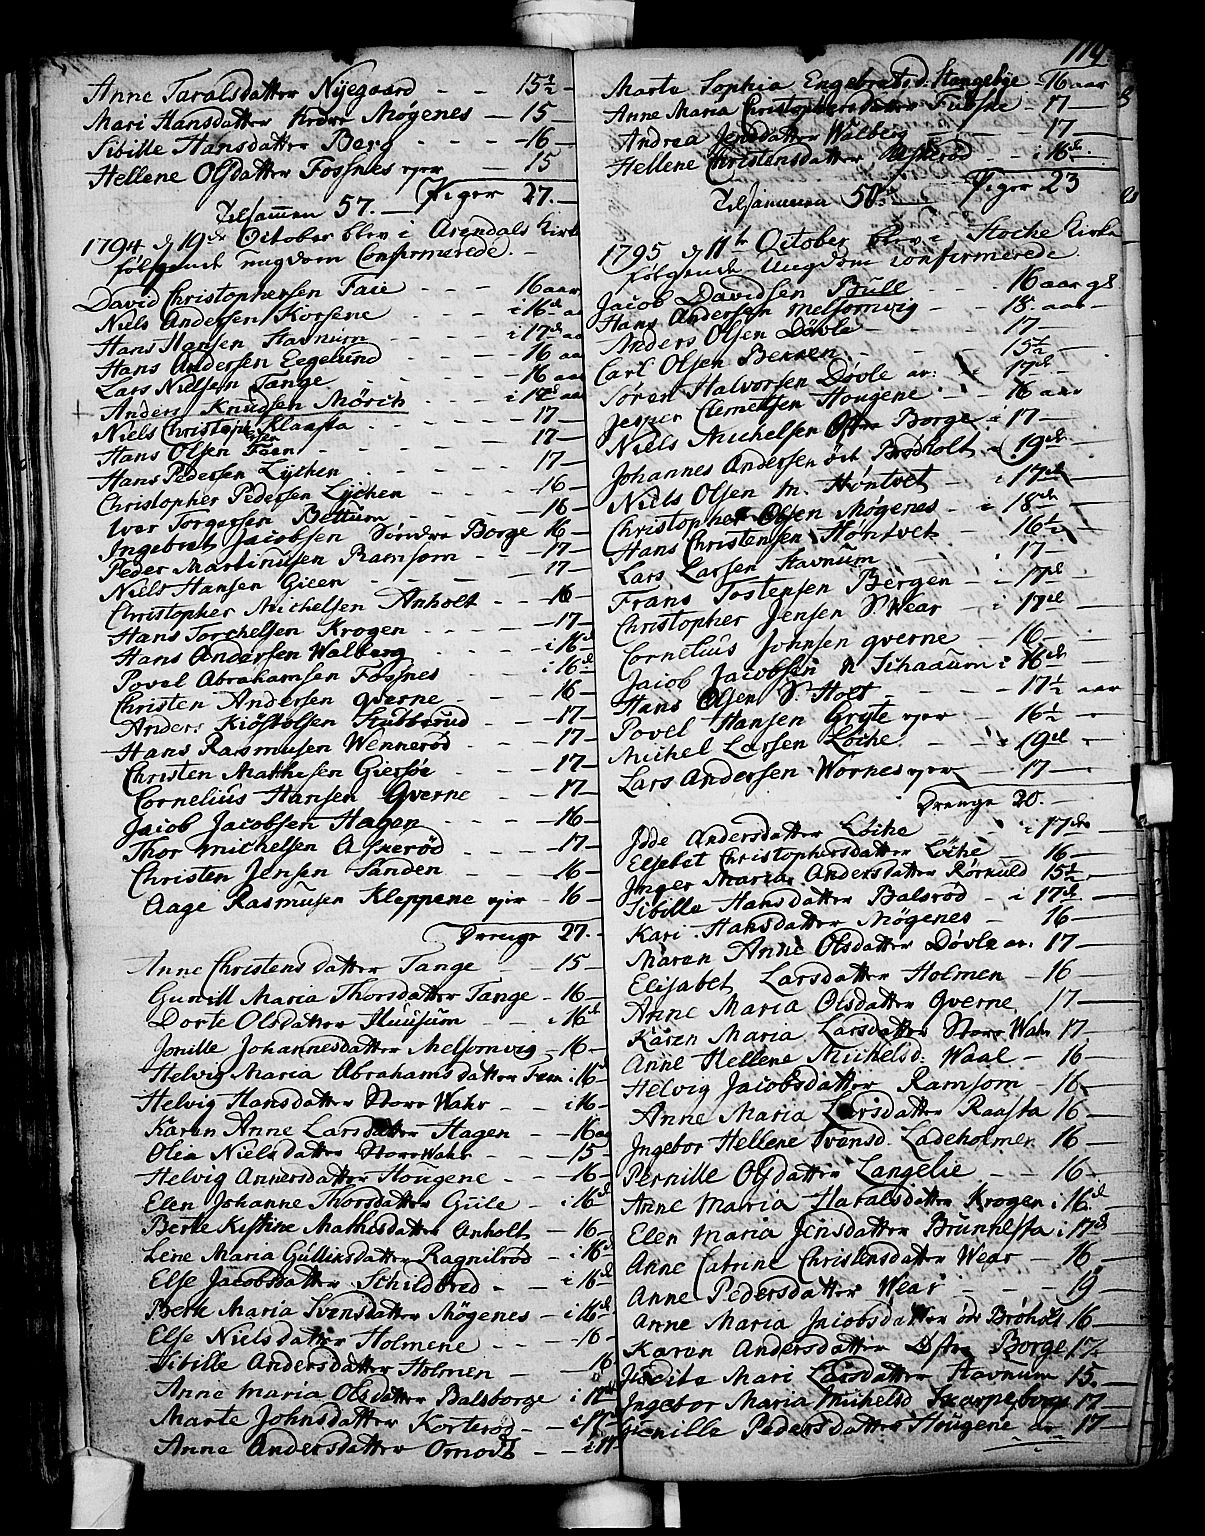 Anne Taralsdatter Nyegaard - - 15½ -
Mari Hansdatter Nedre Møgenes - 15 -
Sibille Hansdatter Berg - - - - 16 -
Hellene Olsdatter Fossnes ejer - 15
Piger 27. -
Tilsammen 57. -
1794 d 19de October blev i Arendals Kirke
følgende ungdom Confirmerede. -
David Christophersen Faie - - - 16 aar
Niels Andersen Korsene - - - i 16de aa
Hans Hansen Stavnum - - - i 17de aa
Hans Andersen Eegelund - - - 16 aa
Lars Nielsen Tange - - - - 16 aa
Anders Knudsen Mörch - - - i 17de aa
Niels Christophersen Klaasta - - - 17 -
Hans Olsen Faen - - - - 17 -
Hans Pedersen Lychen - - - 17 -
Christopher Pedersen Lychen - - - 16 -
Iver Torgersen Bettum - - - - 16 -
Ingebret Jacobsen Söndre Borge 16 -
Peder Martinusen Ramsom - - 17 -
Niels Hansen Gieen - - - - 17 -
Christopher Michelsen Anholt - - 16 -
Hans Torchelsen Krogen - - - 17 -
Hans Andersen Walberg - - - i 16de
Povel Abrahamsen Fossnes - - i 16de
Christen Andersen qverne - - - 16 -
Anders Kiøstolsen Stubberud - - - 17 -
Hans Rasmusen Wennerød - - - 17 -
Christen Mathisen Giersøe - - - 17 -
Cornelius Hansen Qverne - - - 17 -
Jacob Jacobsen Hagen - - - 16 -
Thor Michelsen Askerød - - - 17 -
Christen Jensen Sanden - - - 16 -
Aage Rasmusen Kleppene ejer - 16 -
Drenge 27. -
Anne Christensdatter Tange - - 15 -
Gunill Maria Thorsdatter Tange - 16 -
Dorte Olsdatter Huusum - - i 16de
Jonille Johannesdatter Melsomvig - 16 -
Helvig Maria Abrahamsdatter Faen i 16de
Helvig Hansdatter Store Wahr - - i 16 -
Karen Anne Larsdatter Hagen - - 16 aa
Olea Nielsdatter Store Wahr - - 15 -
Helvig Annersdatter Hougene - - 16 -
Elen Johanne Thorsdatter Guile - i 16de
Berte Kistine Mathisdatter Anholt - 16 -
Lene Maria Gulliksdatter Ragnilrød - i 16de
Else Jacobsdatter Schildbred - - i 16de
Berte Maria Svensdatter Møgenes - i 16de
Else Nielsdatter Holmene - - - 16 -
Sibille Andersdatter Holmen - - 16
Anne Maria Olsdatter Balsborge i 17de
Marte Johnsdatter Korterød - - i 17de
Anne Andersdatter Omodt - - i 17
114.
Marte Sophia Engebretsd. Stangebye 16 aar
Anne Maria Christophersdatter 17 -
Andrea Jensdatter Walberg - - - 17 -
Hellene Christensdatter Askerød - - i 16de
Piger 23
Tilsammen 50. -
1795 d 11te October blev i Stoche Kirke
følgende Ungdom confirmerede.
Jacob Davidsen Bulle - - - 16 aar gl
Hans Andersen Melsomvig - - 18 aar -
Anders Olsen Døvle - - - 17 -
Carl Olsen Bexxen - - - 15½ -
Søren Halvorsen Døvle ar: i 17de
Jesper Clemetsen Hougene - - 16 aar
Niels Michelsen Østre Borge - 17 -
Johannes Andersen öst Brodholt - i 19de
Niels Olsen m. Hóntvet - i 17de
Christopher Olsen Møgenes - i 18de
Hans Christensen Høntvet - 16½ -
Lars Larsen Stavnum - - 17 -
Frans Tostensen Bergen - - i 17de
Christopher Jensen S. Wear - i 17de
Cornelius Johnsen qverne - - 16 -
Jacob Jacobsen N Schaaum i 16de
Hans Olsen S. Holt - - - 17½ aar
Povel Hansen Gryte ejer - - 16½ -
Michel Larsen Løche. - - - i 19de
Lars Andersen Wornes ejer - 17 -
Drenge 20. -
Idde Andersdatter Löche - - i 17de
Elsebet Christophersdatter Löche - 16 -
Inger Maria Andersdatter Rørkuld 15½ -
Sibille Hansdatter Balsrød - i 17de
Kari Hansdatter Møgenes - 16 -
Maren Anne Olsdatter Døvle ar: 17 -
Elisabet Larsdatter Holmen - 16 -
Anne Maria Olsdatter Qverne 17 -
Karen Maria Larsdatter Store Wahr 17 -
Anne Hellene Michelsd: Waal - 16 -
Helvig Jacobsdatter Ramsom - 16 -
Anne Maria Larsdatter Raasta 16 -
Ingebor Hellene Svensd. Ladeholmen 16 -
Pernille Olsdatter Langelie - - 16 -
Anne Maria Haralsdatter Krogen i 16de
Elen Maria Jensdatter Brunhesta i 17de
Anne Catrine Christensdatter Wear - 16 -
Anne Pedersdatter Wear - - 19 -
Anne Maria Jacobsdatter öst Bröholt 16 -
Karen Andersdatter Østre Borge 17 -
Judite Mari Larsdatter Stavnum 15. -
Ingebor Maria Michelsd Skarpeborge 17 -
Gunille Pedersdatter Hougene ar 17 -